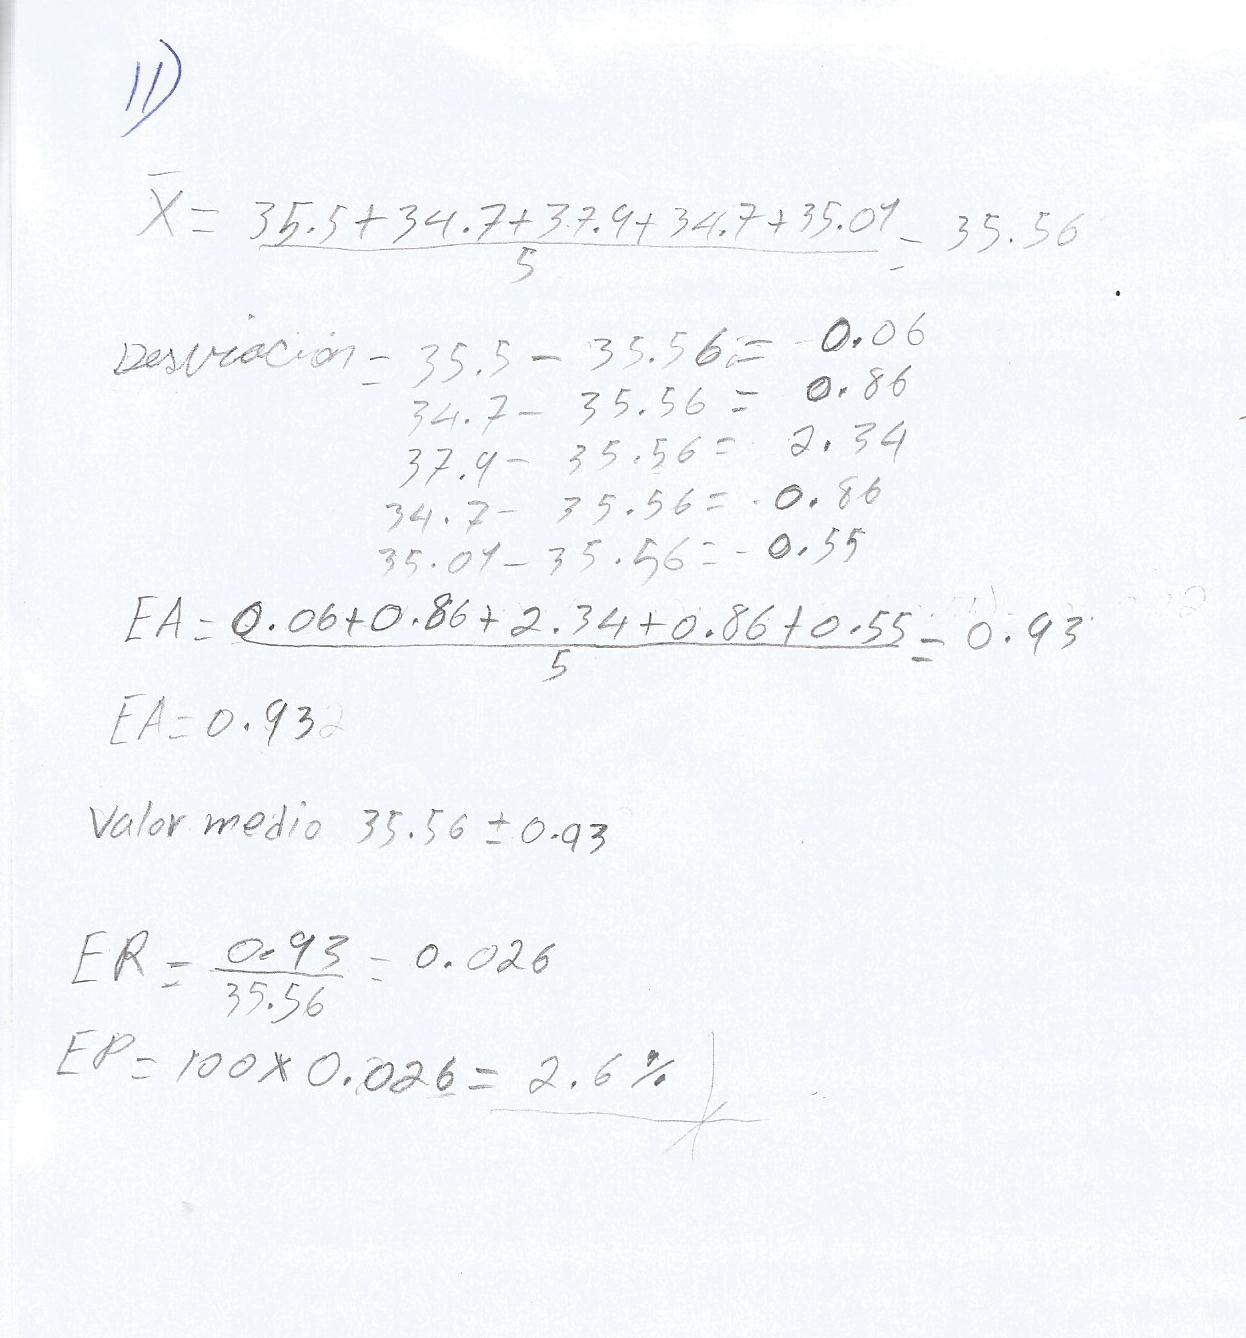 11)
X̄ = 35.5+34.7+37.9+34.7+35.01 = 35.56
5
Desviación = 35.5 - 35.56 = -0.06
34.7 - 35.56 = 0.86
37.9 - 35.56 = 2.34
34.7 - 35.56 = -0.86
35.01 - 35.56 = -0.55
EA = 0.06+0.86+2.34+0.86+0.55 = 0.93
5
EA = 0.932
Valor medio 35.56 ± 0.93
ER = 0.93 = 0.026
35.56
EP = 100 x 0.026 = 2.6 %